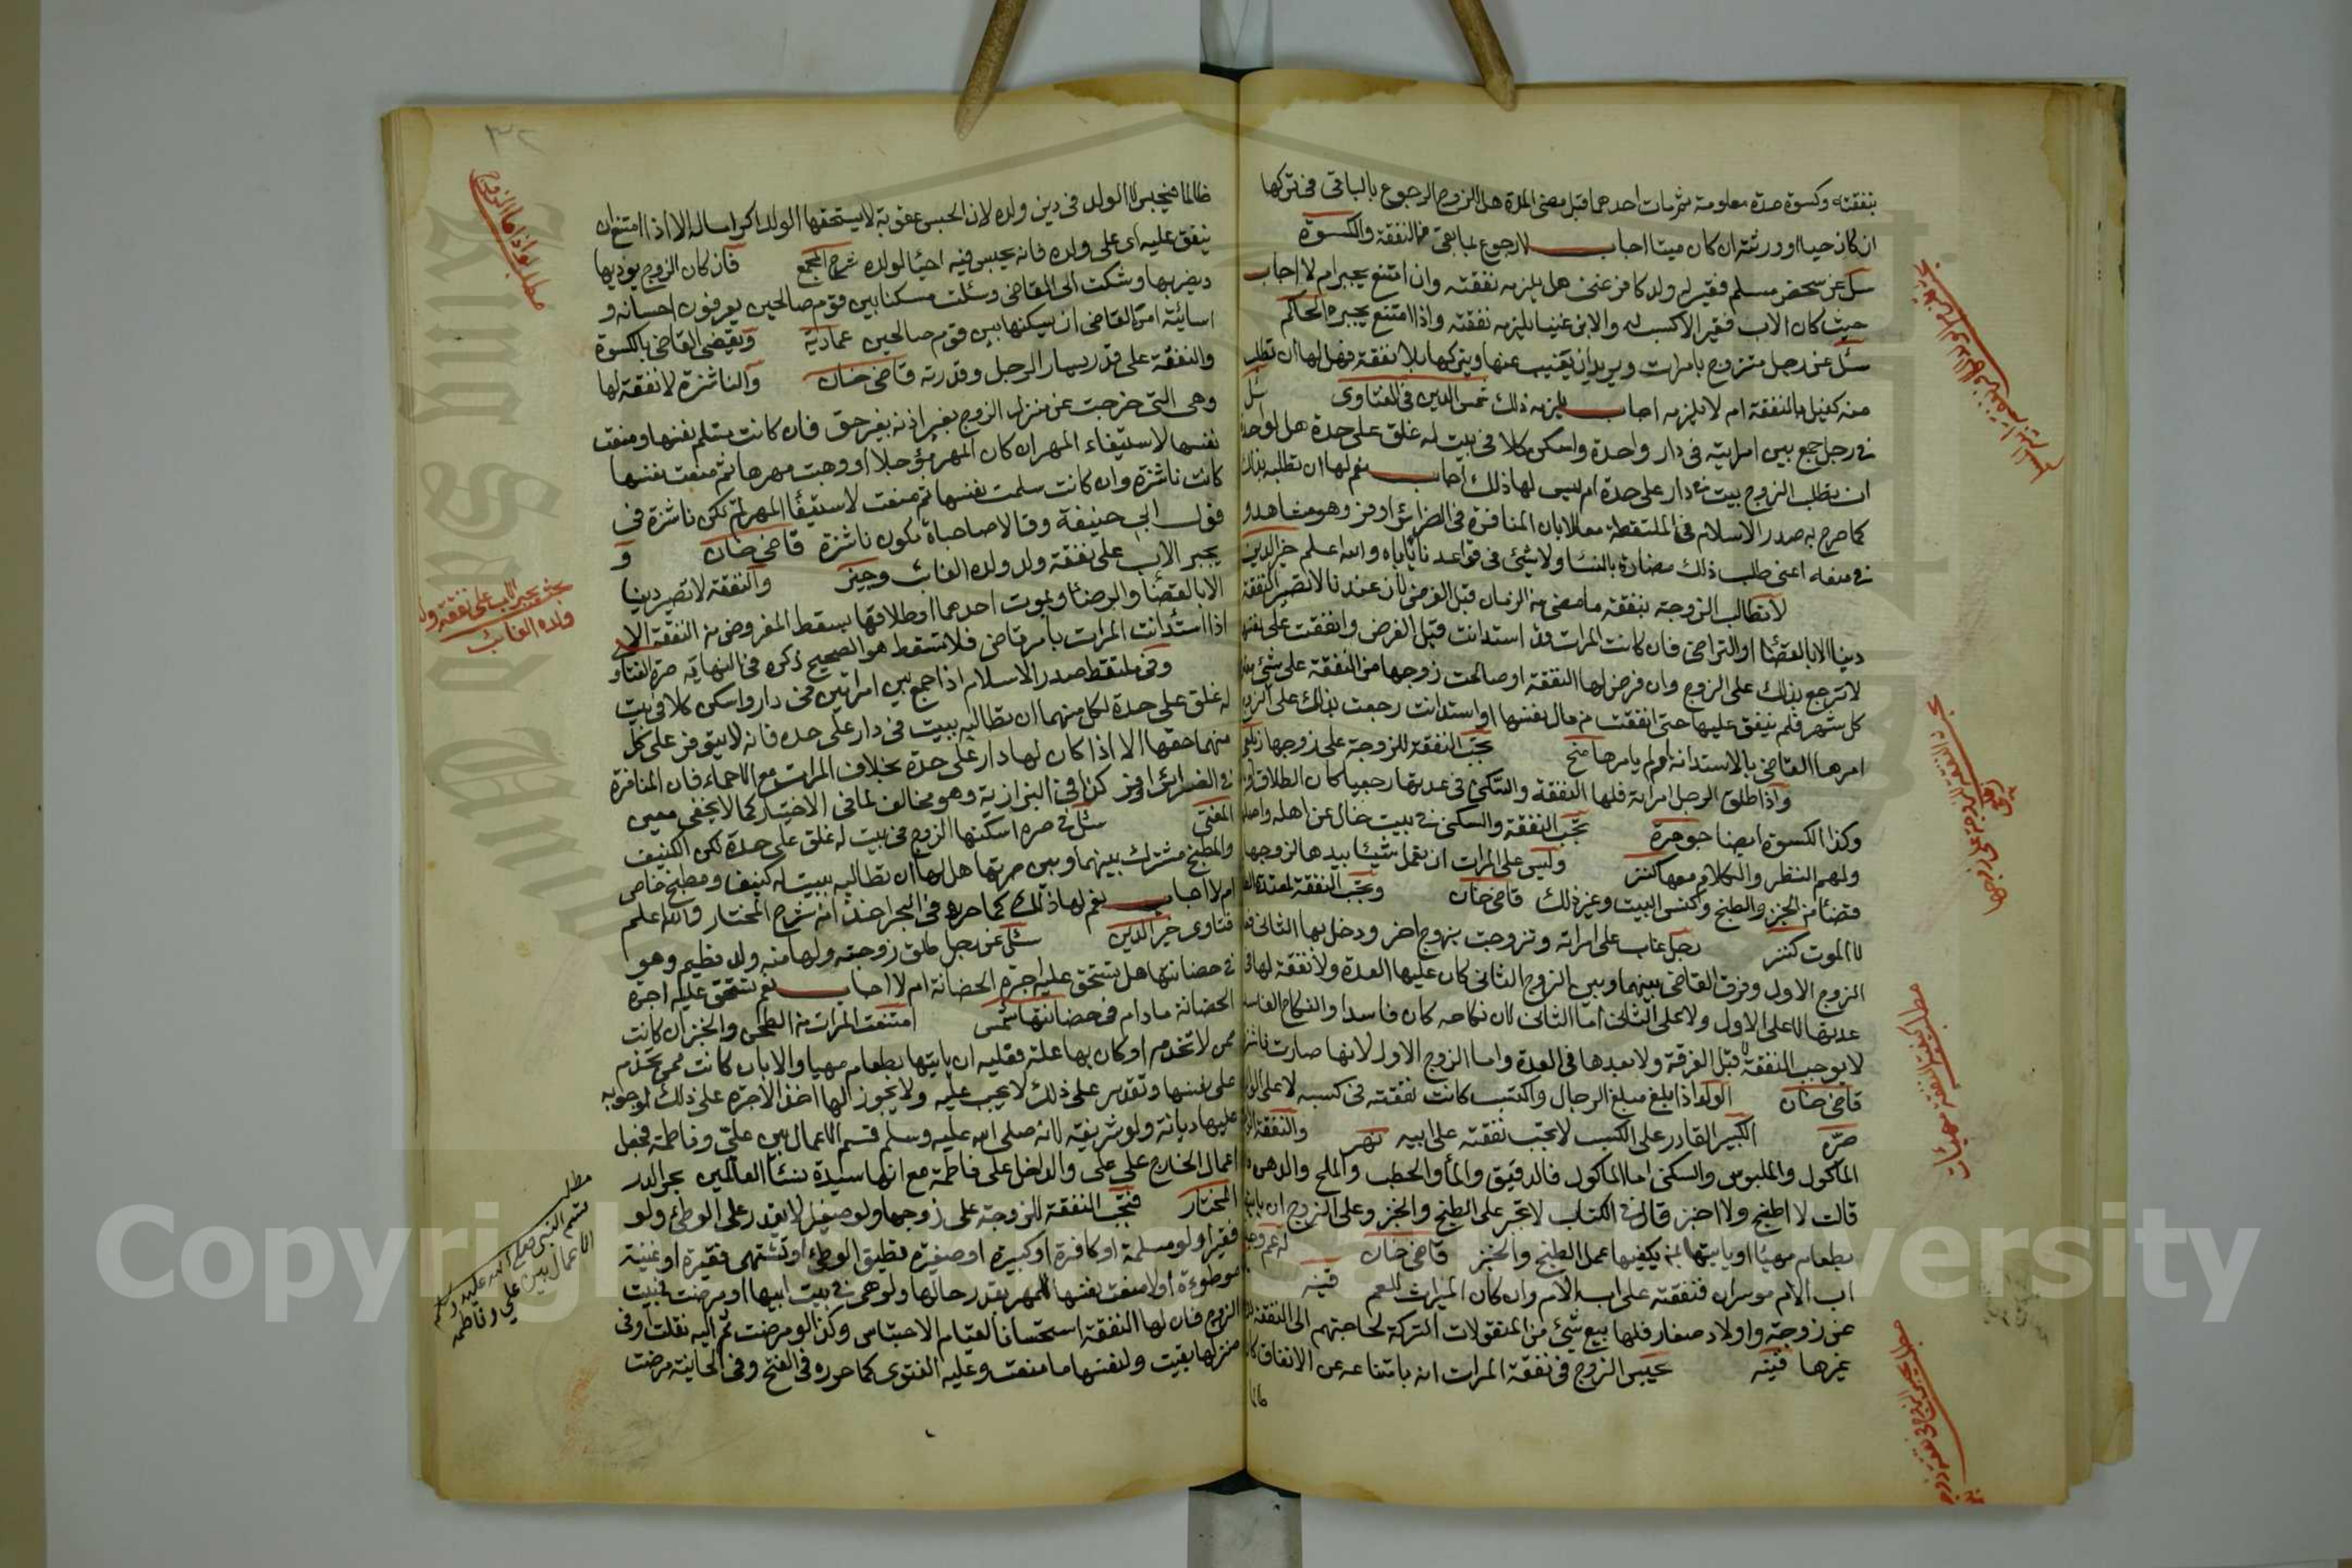 بنفقته وكسوة مدة معلومة ثم مات احدهما قبل مضى المدة هل للزوج الرجوع بالباقى فى تركها
ان كان حيا او ورثته ان كان ميتا اجاب لا رجوع بما بقى من النفقة والكسوة
سئل عن شخص مسلم فقير له ولد كافر غنى هل يلزمه نفقته وان امتنع يجبر ام لا اجاب
حيث كان الاب فقيرا لا كسب له والابن غنيا يلزمه نفقته واذا امتنع يجبره الحاكم
سئل عن رجل متزوج بامرات ويريد ان يغيب عنها ويتركها بلا نفقة فهل لها ان تطلب
منه كفيل بالنفقة ام لا يلزمه اجاب يلزمه ذلك شمس الدين فى الفتاوى سئل
فى رجل جمع بين امرايته فى دار واحدة واسكن كلا فى بيت له غلق على حدة هل لواحدة
ان تطلب الزوج بيت فى دار على حدة ام ليس لها ذلك اجاب نعم لها ان تطلبه بذلك
كما صرح به صدر الاسلام فى الملتقطة معللا بان المنافرة فى الضرائر اوفر وهو مشاهد و
فى منعه اعنى طلب ذلك مضارة بالنساء ولا شئ فى قواعدنا ياباه والله اعلم خير الدين
لا تطالب الزوجة بنفقة ما مضى من الزمان قبل الفرض لان عندنا لا تصير النفقة
دينا الا بالقضاء او التراضى فان كانت المرات قد استدانت قبل الفرض وانفقت على نفسها
لا ترجع بذلك على الزوج وان فرض لها النفقة او صالحت زوجها من النفقة على شئ
كل شهر فلم ينفق عليها حتى انفقت من مال نفسها او استدانت رجعت بذلك على الزوج
امرها القاضى بالاستدانة او لم يامرها منح تجب النفقة للزوجة على زوجها زيلعى
واذا طلق الرجل امراته فلها النفقة والسكنى فى عدتها رجعيا كان الطلاق او
وكذا الكسوة ايضا جوهرة تجب النفقة والسكنى فى بيت خال عن اهله واهلها
ولهم النظر والكلام معها كنز وليس على المرات ان تعمل شيئا بيدها لزوجها
قضاء من الخبز والطبخ وكنس البيت وغير ذلك قاضى خان وتجب النفقة لمعتدة الطلاق
لا الموت كنز رجل غاب على امراته وتزوجت بزوج اخر ودخل بها الثانى
الزوج الاول وفرق القاضى بينهما وبين الزوج الثانى كان عليها العدة ولا نفقة لها فى
عدتها لا على الاول ولا على الثانى اما الثانى لان نكاحه كان فاسدا والنكاح الفاسد
لا يوجب النفقة لا قبل الفرقة ولا بعدها فى العدة واما الزوج الاول لانها صارت ناشزة
قاضى خان الولد اذا بلغ مبلغ الرجال واكتسب كانت نفقته فى كسبه لا على الوالد
صرة الكبير القادر على الكسب لا تجب نفقته على ابيه نهر والنفقة
الماكول والملبوس والسكنى اما الماكول فالدقيق والماء والحطب والملح والدهن
قالت لا اطبخ ولا اخبز قال فى الكتاب لا تجبر على الطبخ والخبز وعلى الزوج ان ياتيها
بطعام مهيا او ياتيها بمن يكفيها عمل الطبخ والخبز قاضى خان له عم و
اب الام موسران فنفقته على اب الام وان كان الميراث للعم قنيه
عن زوجة واولاد صغار فلها بيع شئ من المنقولات التركة لحاجتهم الى النفقة
غيرها قنيه يحبس الزوج فى نفقة المرات انه بامتناعه عن الانفاق كان
مطلب كيفية النفقة
٣٢
ظالما فيحبس لا الوالد فى دين ولده لان الحبس عقوبة لا يستحقها الوالد اكراما له الا اذا امتنع ان
ينفق عليه اى على ولده فانه يحبس فيه احياء لولده شرح المجمع فان كان الزوج يوذيها
ويضربها وشكت الى القاضى وسئلت مسكنا بين قوم صالحين يعرفون احسانه و
اسائته امر القاضى ان يسكنها بين قوم صالحين عمادية وتقضى القاضى بالكسوة
والنفقة على قدر يسار الرجل وقدرته قاضى خان والناشزة لا نفقة لها
وهى التى خرجت عن منزل الزوج بغير اذنه بغير حق فان كانت تسلم نفسها ومنعت
نفسها لاستيفاء المهر ان كان المهر مؤجلا او وهبت مهرها ثم منعت نفسها
كانت ناشزة وان كانت سلمت نفسها ثم منعت لاستيفاء المهر لم تكن ناشزة فى
قول ابى حنيفة وقالا صاحباه تكون ناشزة قاضى خان و
يجبر الاب على نفقة ولد ولده الغائب وجيز والنفقة لا تصير دينا
الا بالقضاء والرضا وبموت احدهما او طلاقها يسقط المفروض من النفقة الا
اذا استدانت المرات بامر قاضى فلا تسقط هو الصحيح ذكره فى النهاية صرة الفتاو
وفى ملتقط صدر الاسلام اذا جمع بين امراتين فى دار واسكن كلا فى بيت
له غلق على حدة لكل منهما ان تطالبه ببيت فى دار على حده فانه لا يتوفر على كل
منهما حقها الا اذا كان لها دار على حدة بخلاف المرات مع الاحماء فان المنافرة
فى الضرائر اوفر كذا فى البزازية وهو مخالف لما فى الاختيار كما لا يخفى معين
المفتى سئل فى ضرة اسكنها الزوج فى بيت له غلق على حدة لكن الكنيف
والمطبخ مشترك بينهما وبين ضرتها هل لها ان تطالبه ببيت له كنيف ومطبخ خاص
ام لا اجاب نعم لها ذلك كما حرره فى البحر اخذا من شرح المختار والله اعلم
فتاوى خير الدين سئل عن رجل طلق زوجته ولها منه ولد فطيم وهو
فى حضانتها هل تستحق عليه اجرة الحضانة ام لا اجاب نعم تستحق عليه اجرة
الحضانة مادام فى حضانتها شمس امتنعت المرات من الطحن والخبز ان كانت
ممن لا تخدم او كان بها علة فعليه ان ياتيها بطعام مهيا والا بان كانت ممن تخدم
على نفسها وتقدر على ذلك لا يجب عليه ولا يجوز لها اخذ الاجرة على ذلك لوجوبه
عليها ديانة ولو شريفة لانه صلى الله عليه وسلم قسم الاعمال بين على وفاطمة فجعل
اعمال الخارج على على والداخل على فاطمة مع انها سيدة نساء العالمين بحر الدر
المختار فتجب النفقة للزوجة على زوجها ولو صغيرا لا يقدر على الوطئ ولو
فقيرا ولو مسلمة او كافرة او كبيرة او صغيرة تطيق الوطئ او تشتهى فقيرة او غنية
موطوءة او لا منعت نفسها للمهر بقدر حالها ولو هى فى بيت ابيها او مرضت فى بيت
الزوج فان لها النفقة استحسانا لقيام الاحتباس وكذا لو مرضت ثم اليه نقلت او فى
منزلها بقيت ولنفسها ما منعت وعليه الفتوى كما حرره فى الفتح وفى الخانية مرضت
يجبر الاب على نفقة ولد
ولده الغائب
مطلب
قسم النبى صلى الله عليه وسلم
الاعمال بين على وفاطمه
Copyright © King Saud University